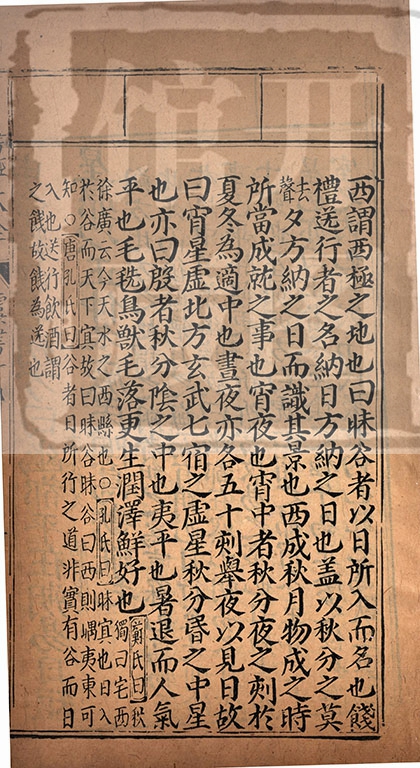 西謂西極之地也曰昧谷者以日所入而名也餞
禮送行者之名納日方納之日也蓋以秋分之莫
去聲夕方納之日而識其景也西成秋月物成之時
所當成就之事也宵夜也宵中者秋分夜之刻於
夏冬為適中也晝夜亦各五十刻舉夜以見日故
曰宵星虛北方玄武七宿之虛星秋分昏之中星
也亦曰殷者秋分陰之中也夷平也暑退而人氣
平也毛毨鳥獸毛落更生潤澤鮮好也鄭氏曰秋
獨曰宅西
徐廣云今天水之西縣也○孔氏曰昧冥也日入
於谷而天下冥故曰昧谷昧谷曰西則嵎夷東可
知○唐孔氏曰谷者日所行之道非實有谷而日
入也送行飲酒謂
之餞故餞為送也